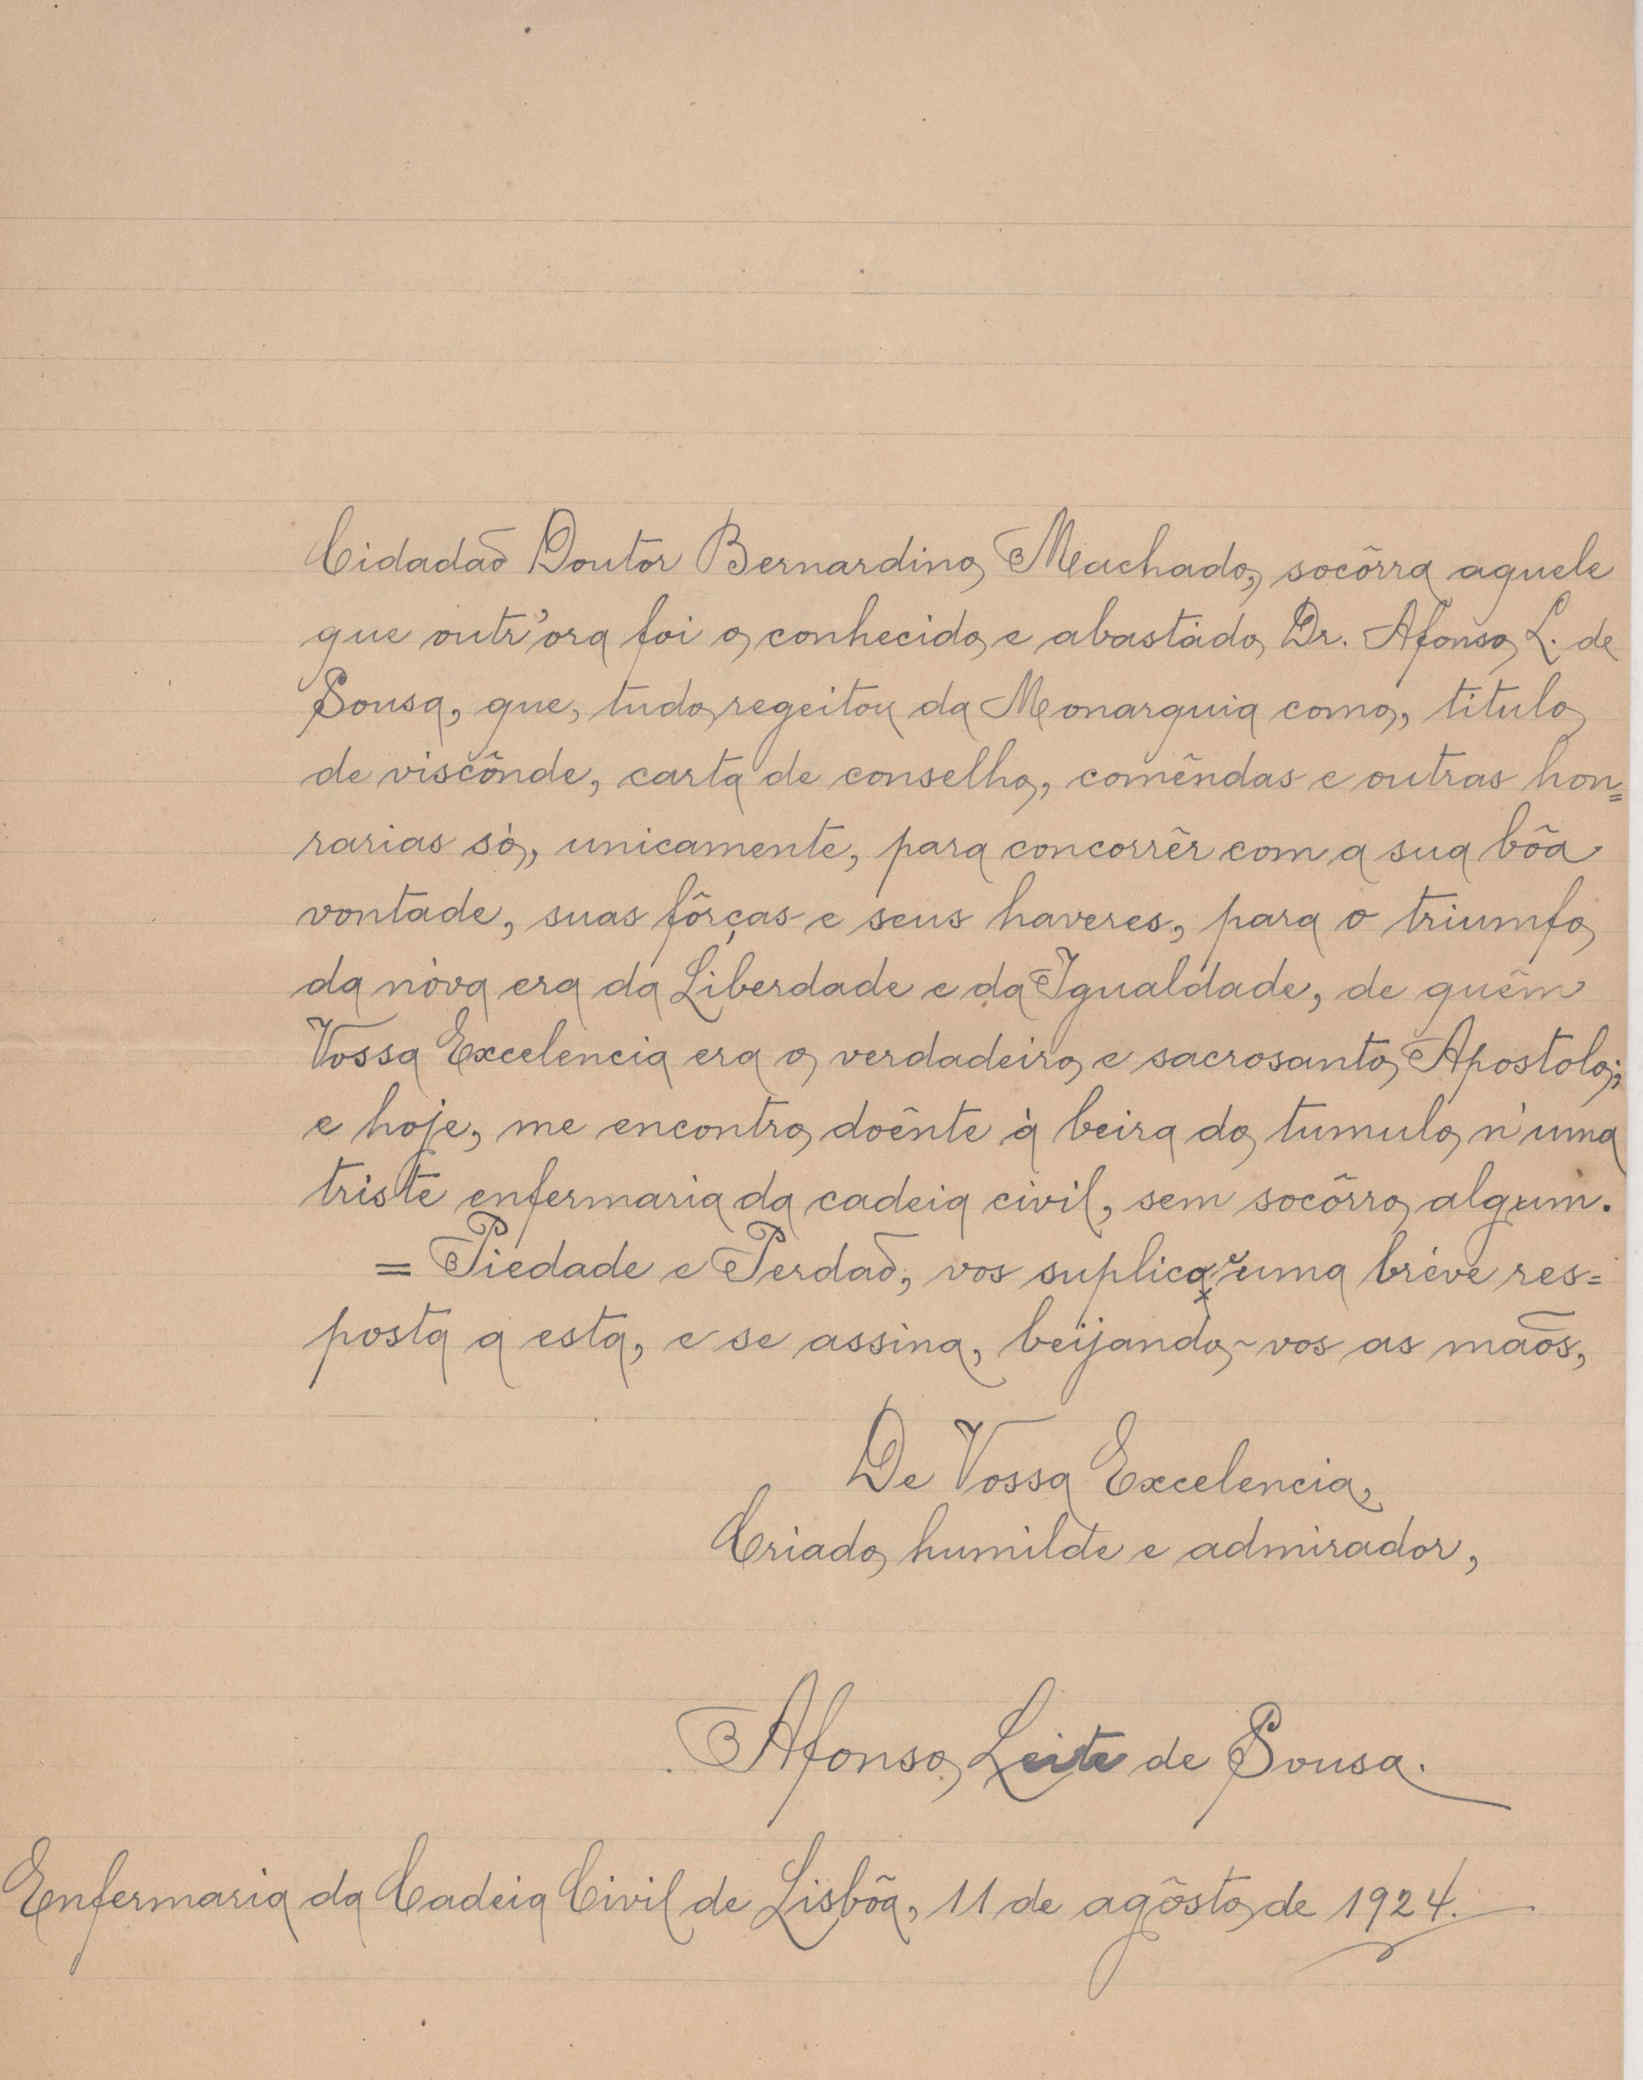 Cidadaõ Doutor Bernardino Machado, socôrra aquele
que outr'ora foi o conhecido e abastádo Dr. Afonso L. de
Sousa, que, tudo regeitou da Monarquia como, titulo
de viscônde, carta de conselho, comêndas e outras hon=
rarias só, unicamente, para concorrêr com a sua bôa
vontade, suas fôrças e seus haveres, para o triumfo
da nóva era da Liberdade e da Igualdade, de quêm
Vossa Excelencia era o verdadeiro e sacrosanto Apostolo;
e hoje, me encontro doênte á beira do tumulo n'uma
triste enfermaria da cadeia civil, sem socôrro algum.
= Piedade e Perdaõ, vos suplica e uma bréve res=
posta a esta, e se assina, beijando-vos as maõs,
De Vossa Excelencia,
Criado humilde e admirador,
Afonso Leite de Sousa.
Enfermaria da Cadeia Civil de Lisbôa, 11 de agôsto de 1924.